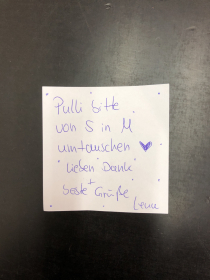 Pulli bitte
von S in M
umtauschen ♥
Lieben Dank
+
beste Grüße
Lena